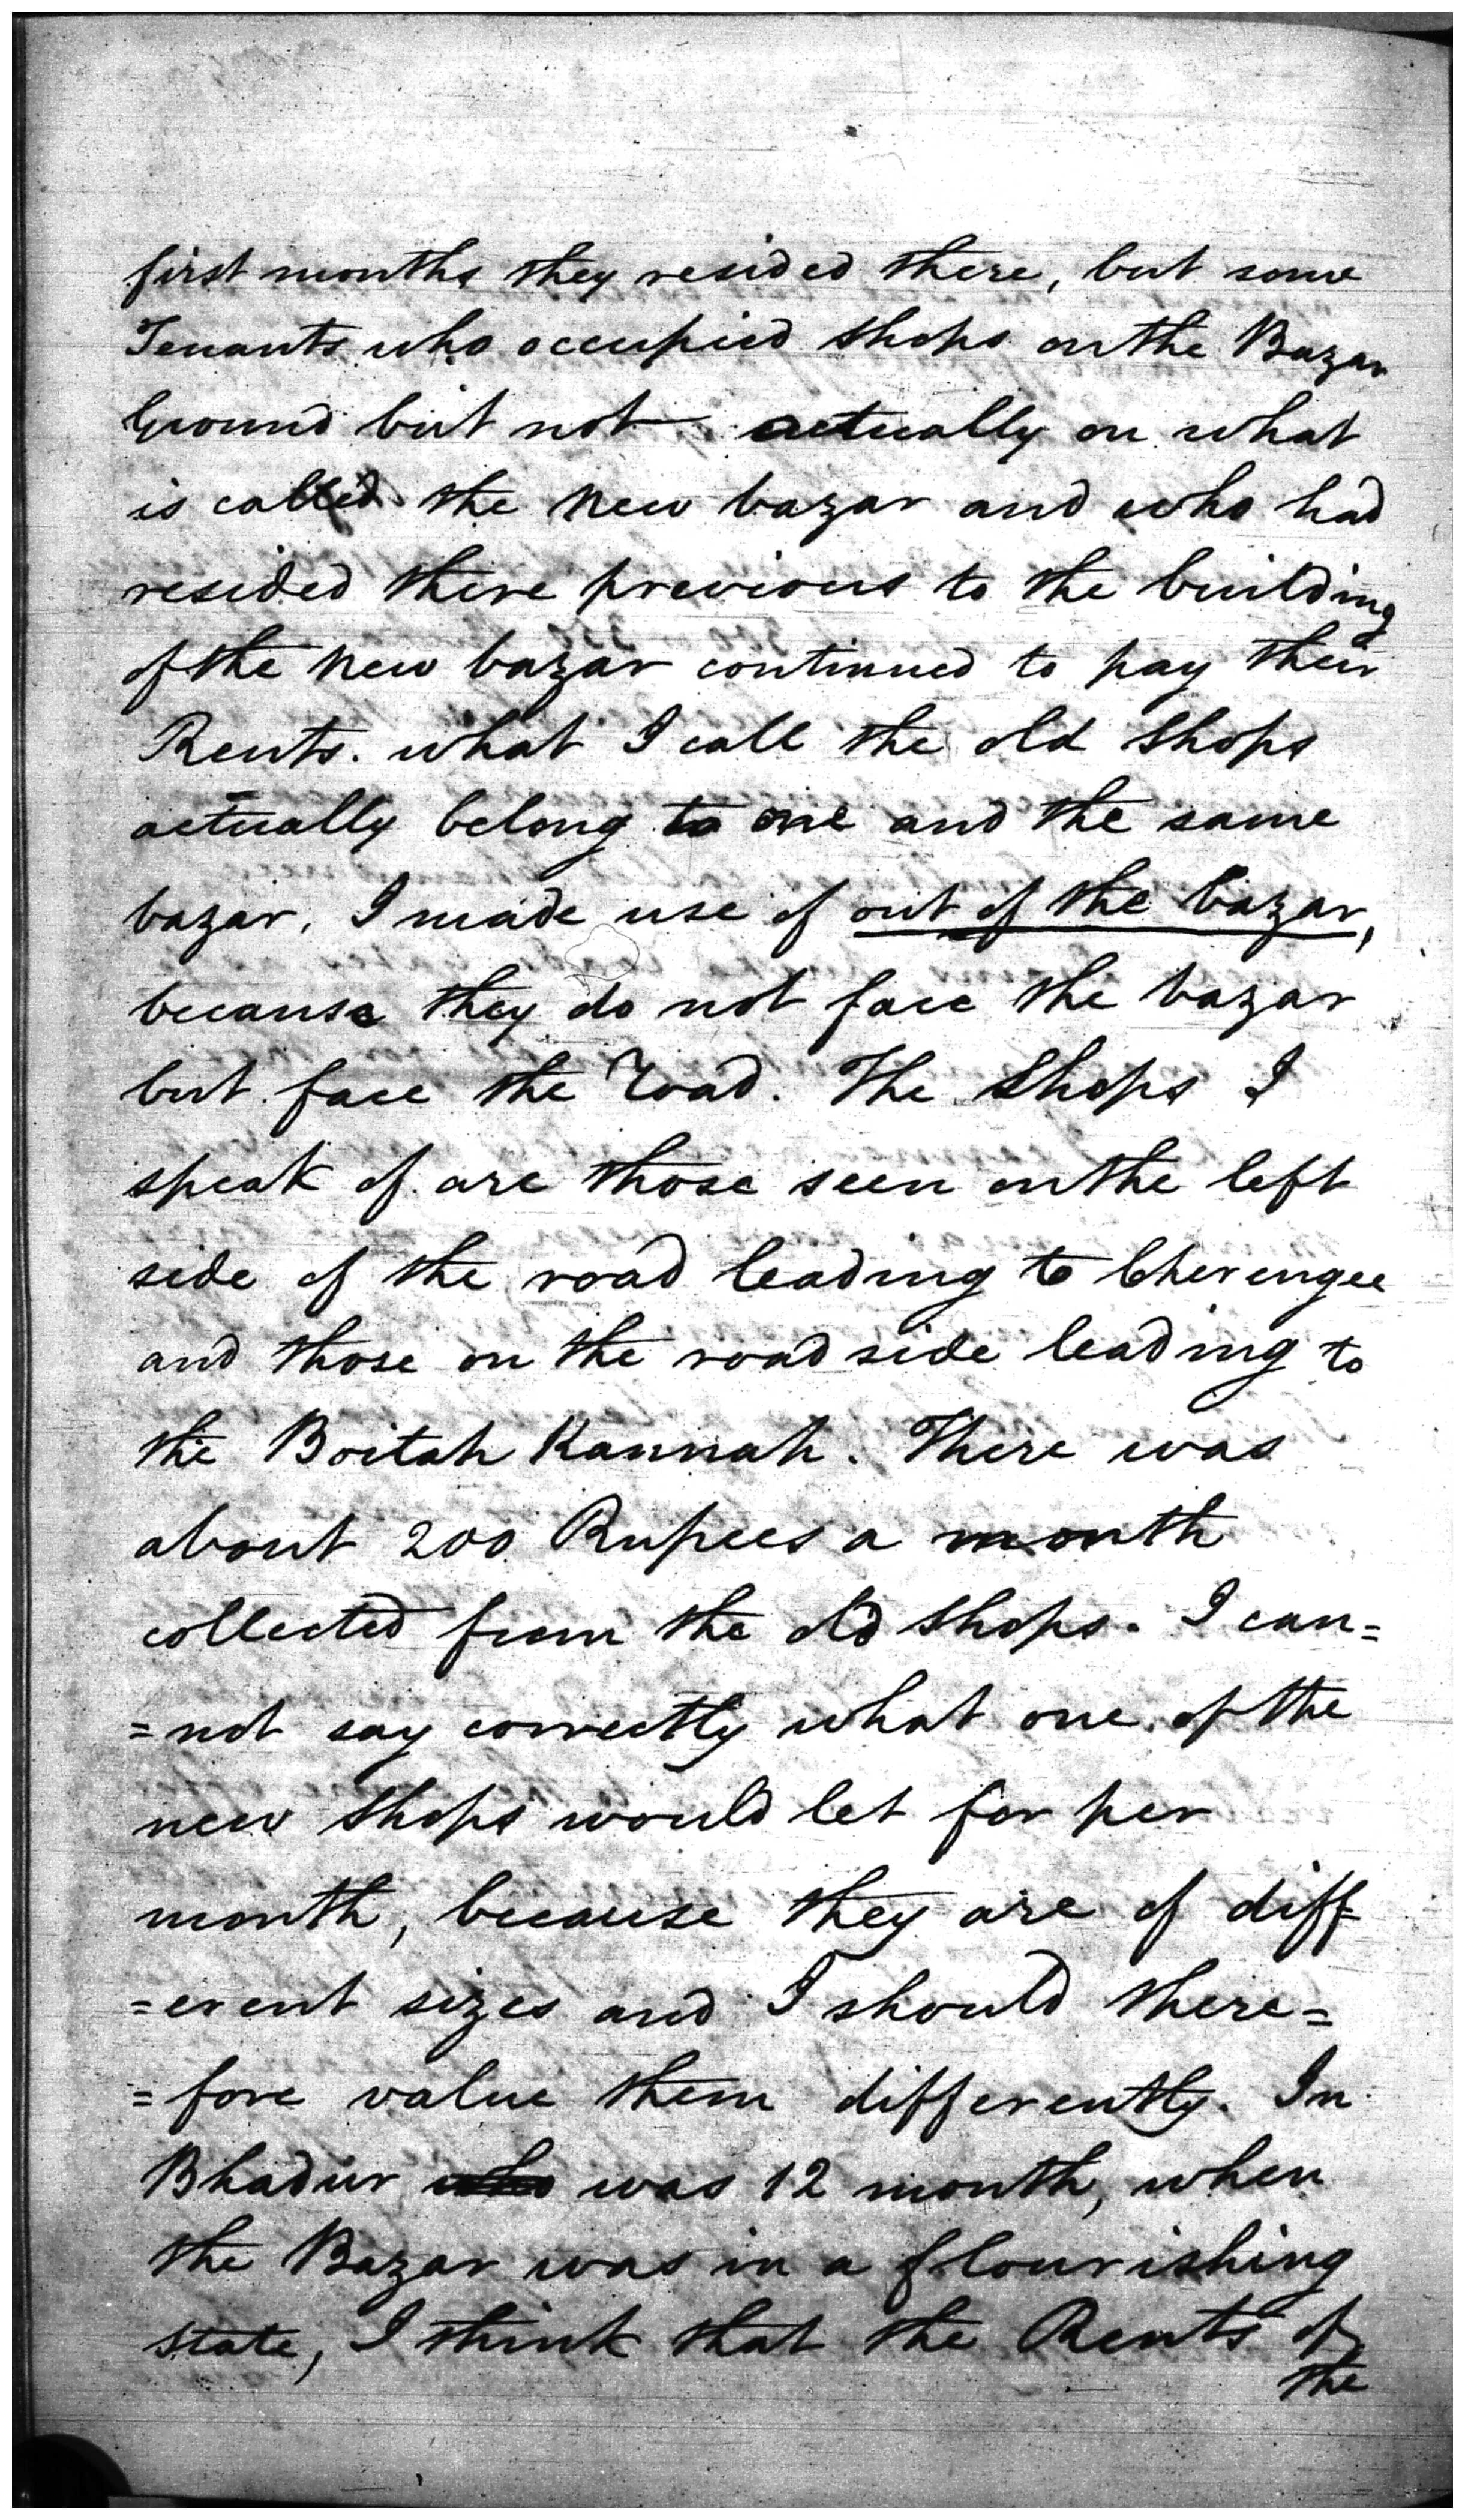 first months they resided there, but some
Tenants who occupied shops on the Bazar
Ground but not actually on what
is called the new bazar and who had
resided there previous to the building
of the new bazar continued to pay their
Rents. what I call the old Shops
actually belong to one and the same
bazar, I made use of out of the bazar,
because they do not face the bazar
but face the road. The Shops I
speak of are those seen on the left
side of the road leading to Cherengee
and those on the road side leading to
the Boitah Kannah. There was
about 200 Rupees a month
collected from the old shops. I can=
=not say correctly what one of the
new shops would let for per
month, because they are of diff=
=erent sizes and I should there=
=fore value them differently. In
Bhadur was 12 month, when
the Bazar was in a flourishing
state, I think that the Rents of
the